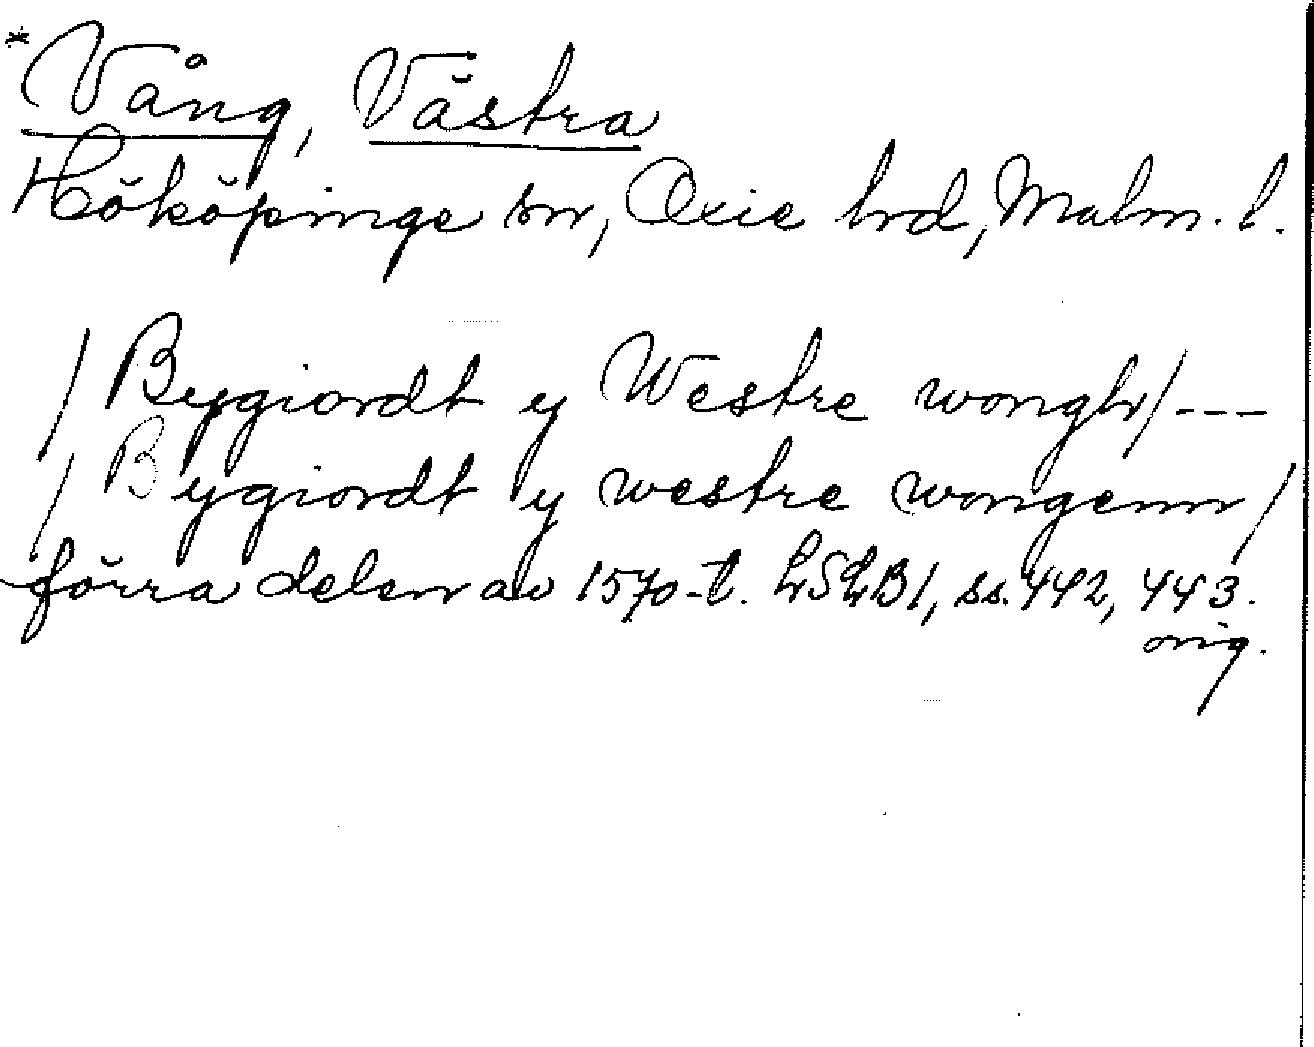 *Vång, Västra
Hököpinge sn, Oxie hrd, Malm. l.
/Bygiordt y Westre wongh/---
/Bygiordt y westre wongenn/
förra delen av 1570-t. LSLB1, ss. 442, 443.
orig.